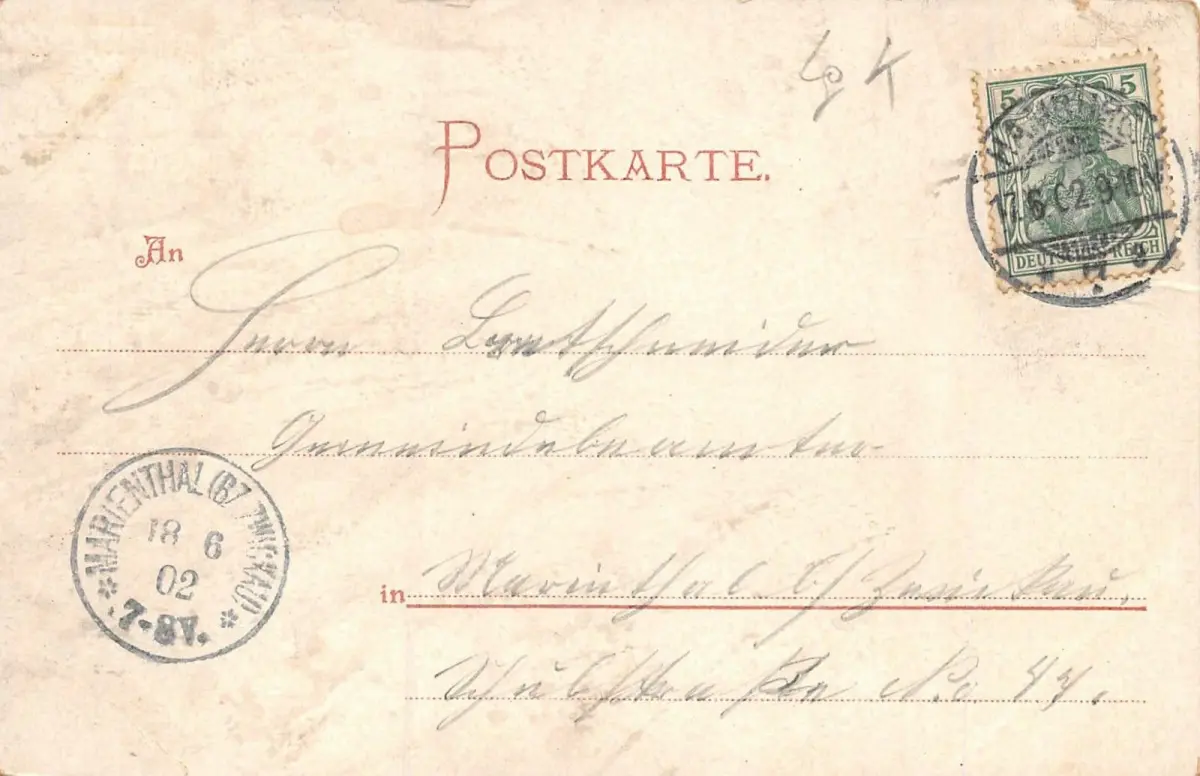 POSTKARTE.
5 5
17.6.02.9-10N.
DEUTSCHES REICH
An
Herrn Bretschneider
Gemeindebeamter
MARIENTHAL (BZ. ZWICKAU)
18 6
02
7-8V.
in Marienthal b/Zwickau,
No. 44.